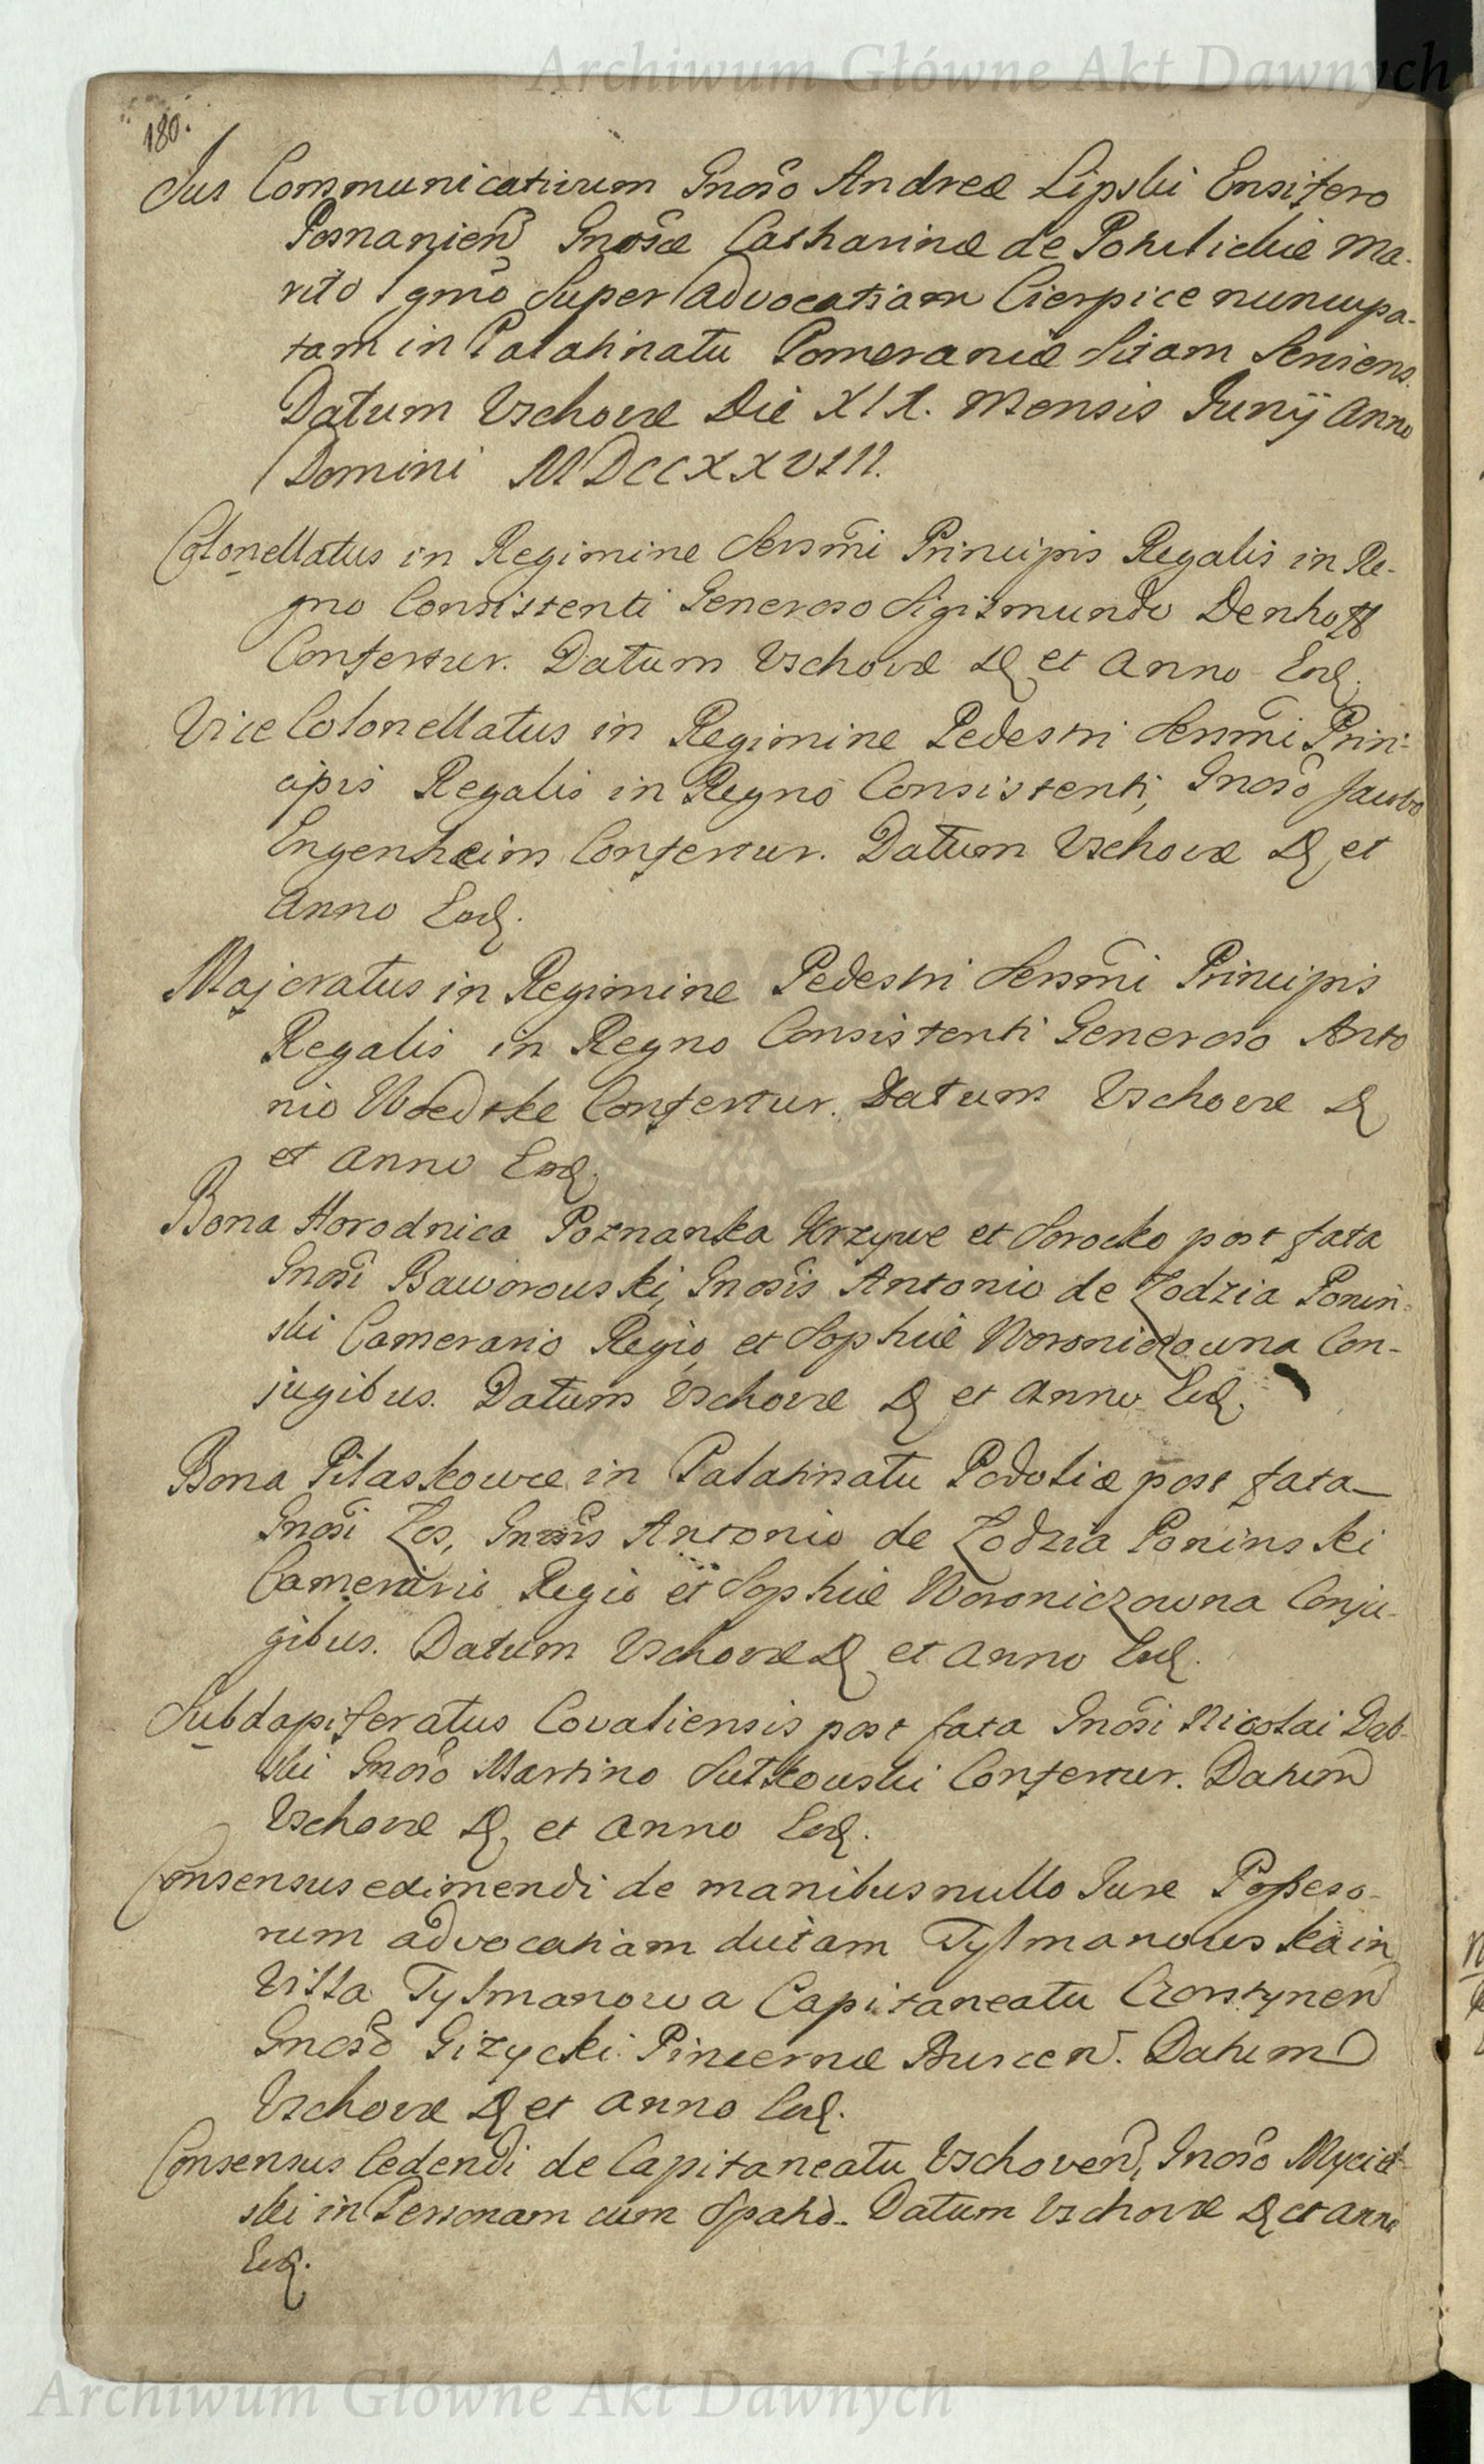 Archiwum Główne Akt Dawnych
180.
Jus Communicativum Gnoso Andreæ Lipski Ensifero
Posnanien Gnosæ Catharinæ de Ma-
rito Suo Super Advocatiam Cierpice nuncupa-
tam in Palatinatu Pomeraniæ Sitam Serviens.
Datum Vschovæ Die XIX. Mensis Junij Anno
Domini MDCCXXVIII.
Colonellatus in Regimine Sersmi Principis Regalis in Re-
gno Consistenti Generoso Sigismundo Denhoff
Confertur. Datum Vschovæ D et Anno Eod.
Vice Colonellatus in Regimine Pedestri Sersmi Prin-
cipis Regalis in Regno Consistenti, Gnoso Jacobo
Engenheim Confertur. Datum Vschovæ D et
Anno Eod.
Majoratus in Regimine Pedestri Sersmi Principis
Regalis in Regno Consistenti Generoso Anto
nio Confertur. Datum Vschovæ D
et Anno Eod.
Bona Horodnica Poznanka Krzywe et Sorocko post fata
Gnosi Baworowski, Gnosis Antonio de Łodzia Ponin-
ski Camerario Regio et Sophiæ Woroniczowna Con-
jugibus. Datum Vschovæ D et Anno Eod.
Bona Pilaskowce in Palatinatu Podoliæ post fata
Gnosi Łos, Gnosis Antonio de Łodzia Poninski
Camerario Regio et Sophiæ Woroniczowna Conju-
gibus. Datum Vschovæ D et Anno Eod.
Subdapiferatus Covaliensis post fata Gnosi Nicolai Dab-
ski Gnoso Martino Sutkowski Confertur. Datum
Vschovæ D et Anno Eod.
Consensus eximendi de manibus nullo Jure Posseso-
rum advocatiam dictam Tylmanowska in
Villa Tylmanowa Capitaneatu Czorstynen
Gnoso Gizycki Pincernæ Buscen. Datum
Vschovæ D et Anno Eod.
Consensus Cedendi de Capitaneatu Vschoven, Gnoso Myciel-
ski in Personam cum Spatio. Datum Vschovæ D et Anno
Eod.
Archiwum Główne Akt Dawnych